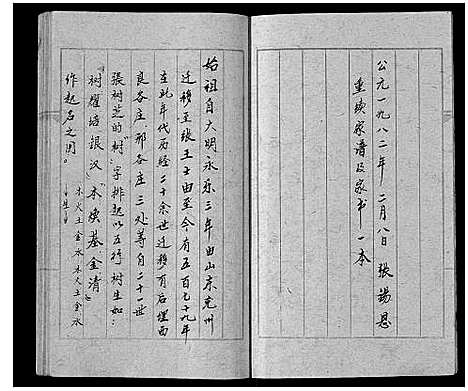 公元一九八二年二月八日 张锡恩
重续家谱及家书一本
始祖自大明永乐三年由山东兖州
迁移至张王士由至今有五百七十九年
在此年代历经二十余世迁移有后堙西
良各庄、邢各庄三处等自二十一世
張树芝的“树”字排起以五行树生如：
“树耀培银汉”“木焕基金清”
作起名之用。
木火土金水木火土金水